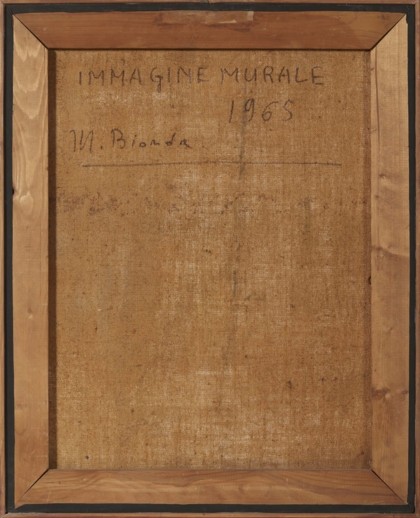 IMMAGINE MURALE
1965
M. Bionda